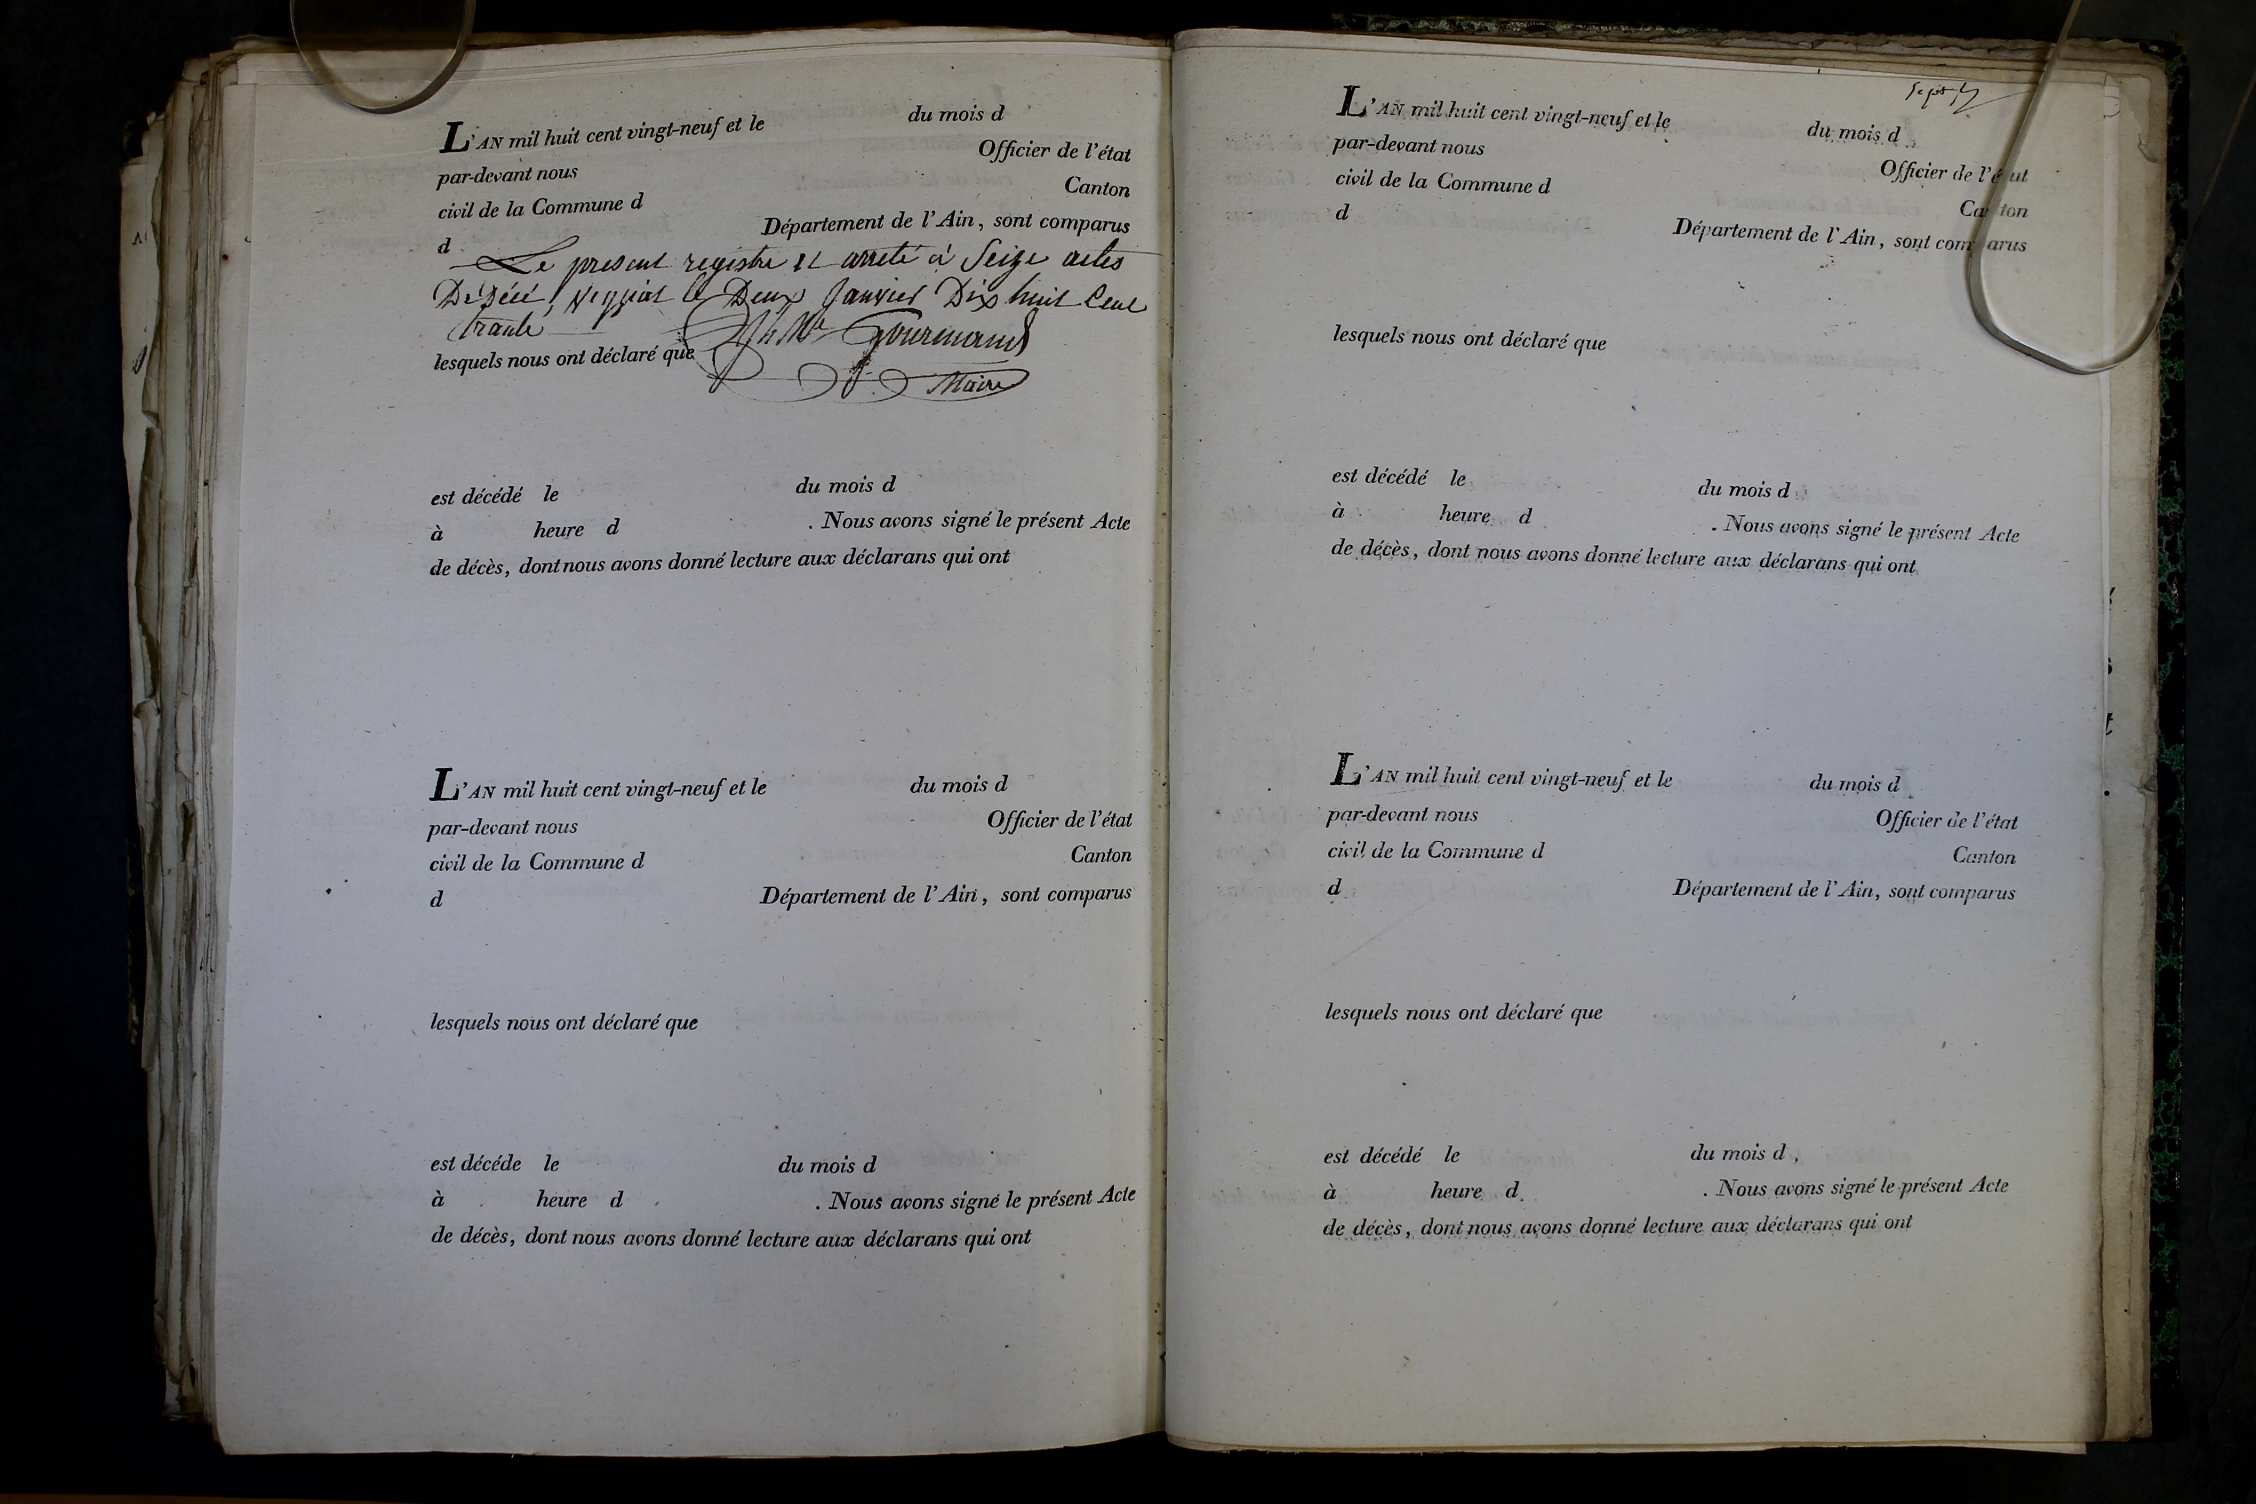 L'AN mil huit cent vingt-neuf et le du mois d
par-devant nous Officier de l'état
civil de la Commune d Canton
d Département de l'Ain, sont comparus
Le present registre et arreté à Seize actes
De Décé, le Deux Janvier Dix huit Cent
trante
Gourmand
lesquels nous ont déclaré que
Maire
est décédé le du mois d
à heure d . Nous avons signé le présent Acte
de décès, dont nous avons donné lecture aux déclarans qui ont
L'AN mil huit cent vingt-neuf et le du mois d
par-devant nous Officier de l'état
civil de la Commune d Canton
d Département de l'Ain, sont comparus
lesquels nous ont déclaré que
est décéde le du mois d
à heure d . Nous avons signé le présent Acte
de décès, dont nous avons donné lecture aux déclarans qui ont
L'AN mil huit cent vingt-neuf et le du mois d
par-devant nous Officier de l'état
civil de la Commune d Canton
d Département de l'Ain, sont comparus
lesquels nous ont déclaré que
est décédé le du mois d
à heure d . Nous avons signé le présent Acte
de décès, dont nous avons donné lecture aux déclarans qui ont
L'AN mil huit cent vingt-neuf et le du mois d
par-devant nous Officier de l'état
civil de la Commune d Canton
d Département de l'Ain, sont comparus
lesquels nous ont déclaré que
est décédé le du mois d
à heure d . Nous avons signé le présent Acte
de décès, dont nous avons donné lecture aux déclarans qui ont